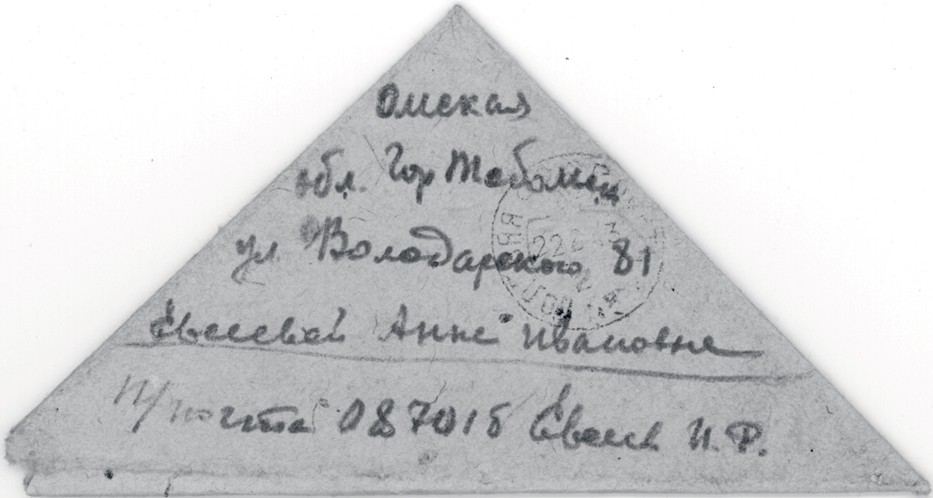 Омская
обл. Гор Тобольск
ул Володарского 81
Евсеевой Анне Ивановне
П/почта 08701б Евсеев И.Ф.
22